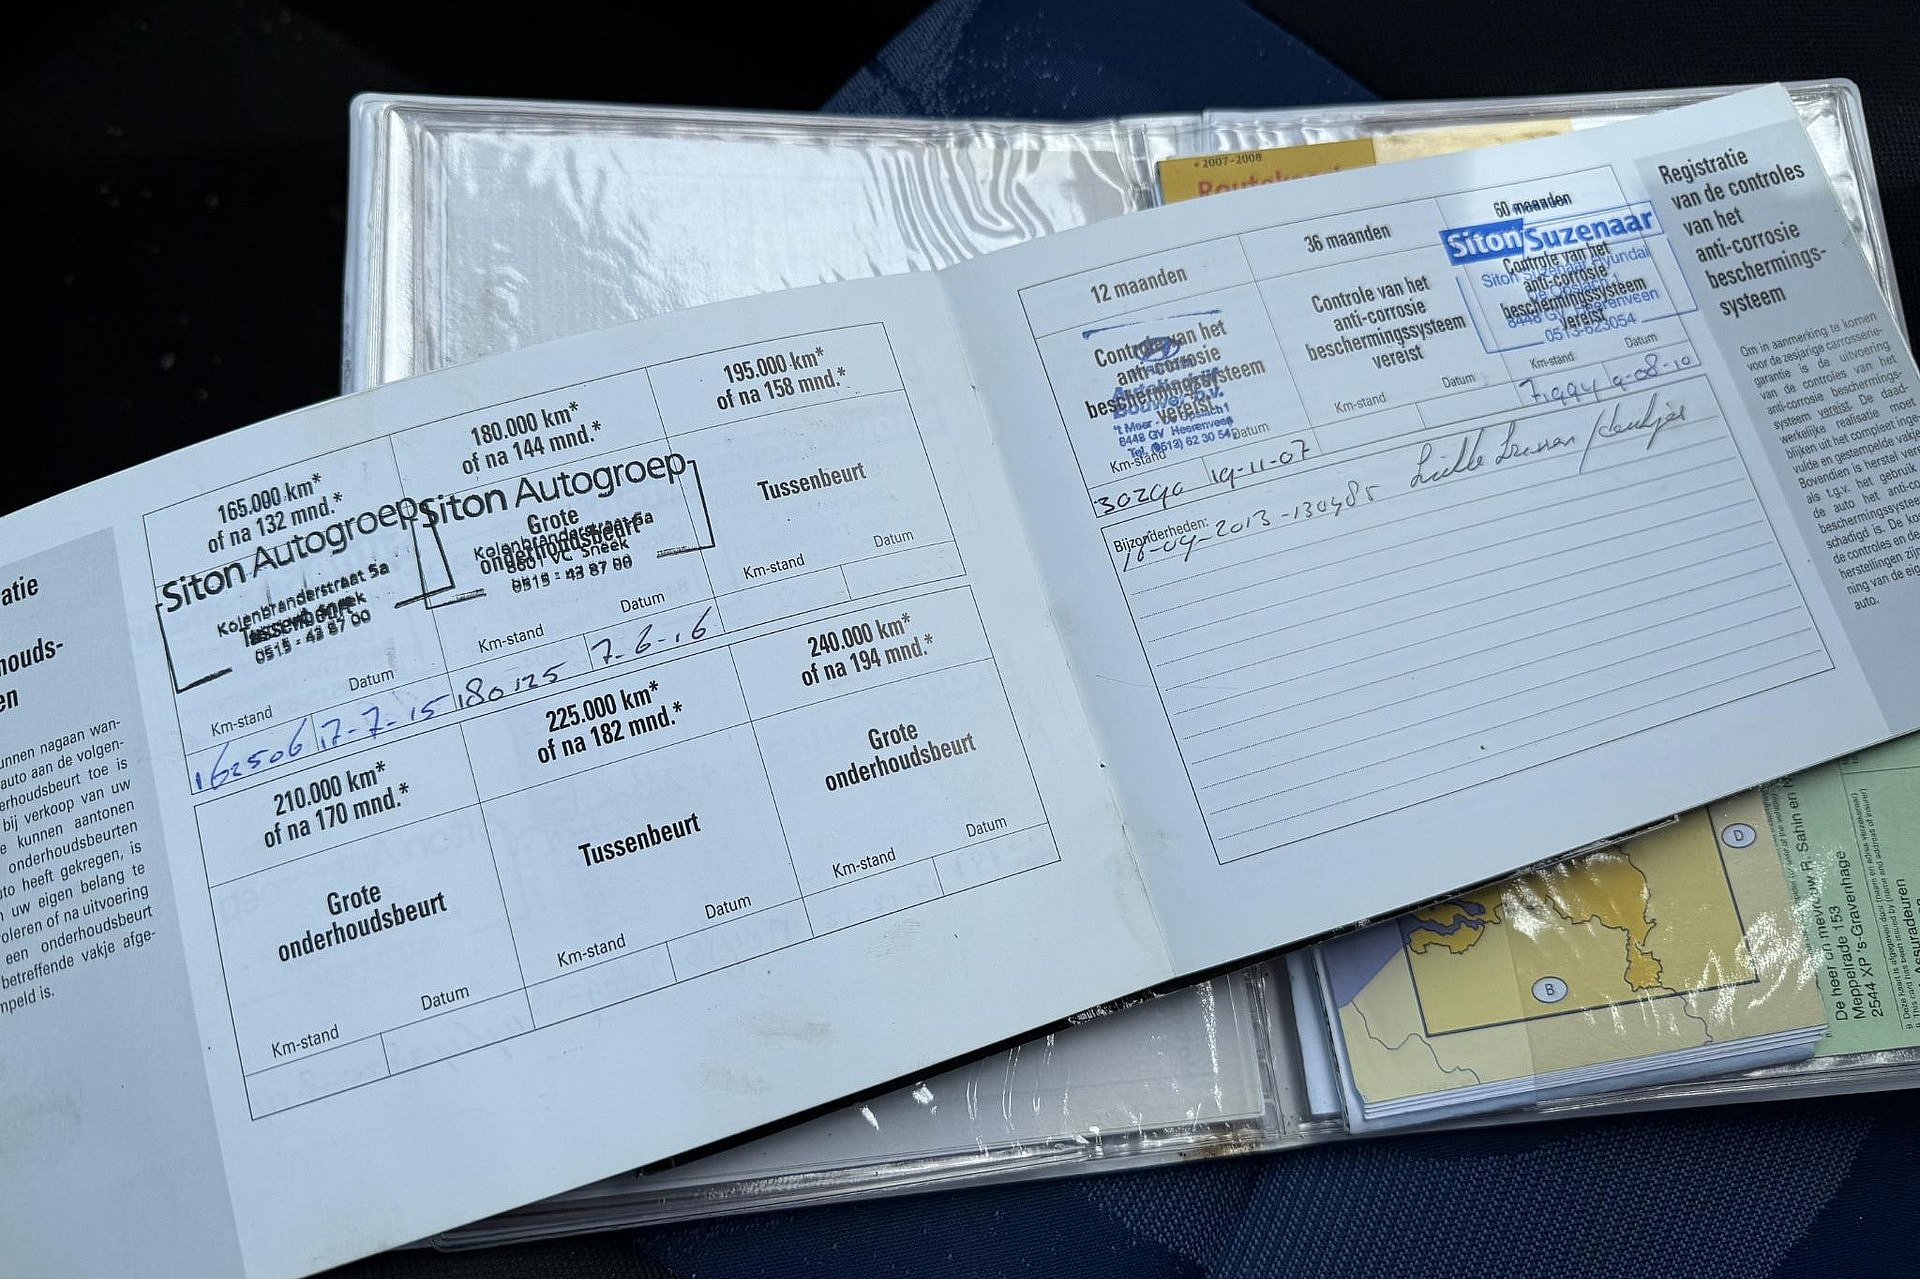 atie
nouds-
en
unnen nagaan wan-
auto aan de volgen-
erhoudsbeurt toe is
bij verkoop van uw
e kunnen aantonen
onderhoudsbeurten
uto heeft gekregen, is
n uw eigen belang te
oleren of na uitvoering
een onderhoudsbeurt
betreffende vakje afge-
mpeld is.
165.000 km*
of na 132 mnd.*
Siton Autogroep
Kolenbranderstraat 5a
Tussenbeurt
0515 - 43 87 00
Km-stand Datum
162506 17-7-15
180.000 km*
of na 144 mnd.*
Siton Autogroep
Grote
Kolenbranderstraat 5a
onderhoudsbeurt
8601 VC Sneek
0515 - 43 87 00
Km-stand Datum
180125 7-6-16
195.000 km*
of na 158 mnd.*
Tussenbeurt
Km-stand Datum
210.000 km*
of na 170 mnd.*
Grote
onderhoudsbeurt
Km-stand Datum
225.000 km*
of na 182 mnd.*
Tussenbeurt
Km-stand Datum
240.000 km*
of na 194 mnd.*
Grote
onderhoudsbeurt
Km-stand Datum
2007-2008
12 maanden
Controle van het
anti-corrosie
beschermingssysteem
vereist
't Meer - De Opslach 1
8448 GV Heerenveen
Tel. (0513) 62 30 54
Km-stand Datum
30290 19-11-07
36 maanden
Controle van het
anti-corrosie
beschermingssysteem
vereist
Km-stand Datum
60 maanden
Siton Suzenaar
Controle van het
Siton Suzenaar Hyundai
anti-corrosie
beschermingssysteem
vereist
0513-623054
Km-stand Datum
71994 9-08-10
Bijzonderheden:
18-04-2013 - 130485
Registratie
van de controles
van het
anti-corrosie
beschermings-
systeem
Om in aanmerking te komen
voor de zesjarige carrosserie-
garantie is de uitvoering
van de controles van het
anti-corrosie beschermings-
systeem vereist. De daad-
werkelijke realisatie moet
blijken uit het compleet inge-
vulde en gestempelde vakje
Bovendien is herstel
als t.g.v. het gebruik
de auto het anti-co
beschermingssystee
schadigd is. De ko
de controles en de
herstellingen zijn
ning van de eig
auto.
D
B
De heer en mevrouw R. Sahin en
Meppelrade 153
2544 XP 's-Gravenhage